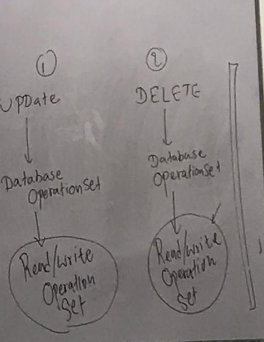 1
UPDate
Database
OperationSet
Read/write
Operation
Set
2
DELETE
Database
OperationSet
Read/write
Operation
Set